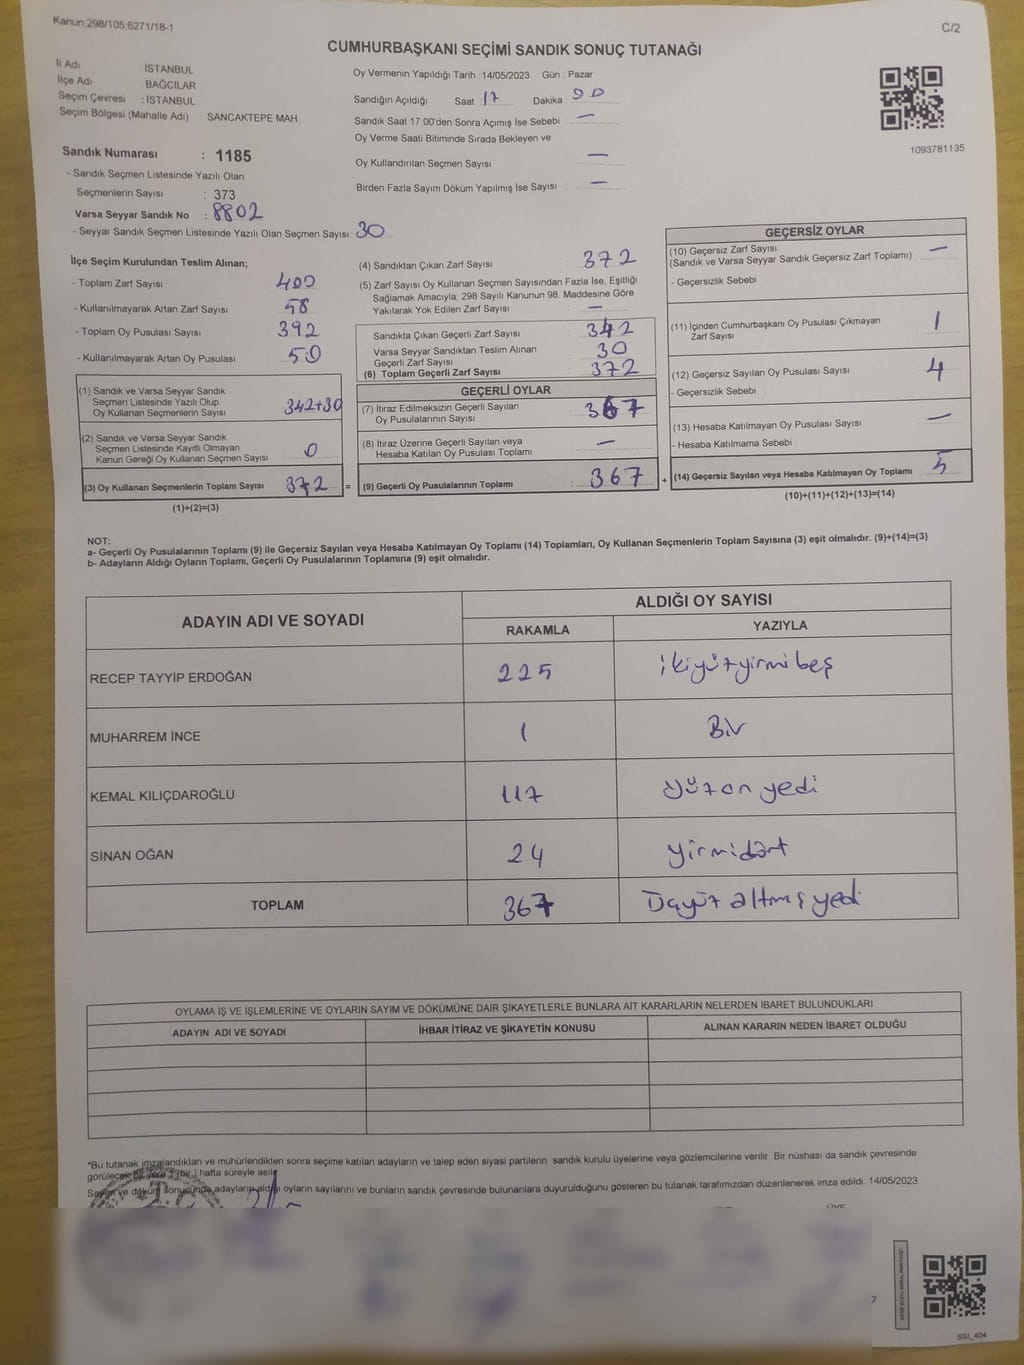 Kanun:298/105,6271/18-1
C/2
CUMHURBAŞKANI SEÇİMİ SANDIK SONUÇ TUTANAĞI
İl Adı İSTANBUL
İlçe Adı BAĞCILAR
Seçim Çevresi : İSTANBUL
Seçim Bölgesi (Mahalle Adı) SANCAKTEPE MAH.
Sandık Numarası : 1185
- Sandık Seçmen Listesinde Yazılı Olan
Seçmenlerin Sayısı : 373
Varsa Seyyar Sandık No : 8802
- Seyyar Sandık Seçmen Listesinde Yazılı Olan Seçmen Sayısı: 30
Oy Vermenin Yapıldığı Tarih : 14/05/2023 Gün : Pazar
Sandığın Açıldığı Saat 17 Dakika : 00
Sandık Saat 17:00'den Sonra Açımış İse Sebebi : —
Oy Verme Saati Bitiminde Sırada Bekleyen ve
Oy Kullandırılan Seçmen Sayısı : —
Birden Fazla Sayım Döküm Yapılmış İse Sayısı : —
1093781135
İlçe Seçim Kurulundan Teslim Alınan;
- Toplam Zarf Sayısı : 400
- Kullanılmayarak Artan Zarf Sayısı : 58
- Toplam Oy Pusulası Sayısı : 392
- Kullanılmayarak Artan Oy Pusulası : 50
(1) Sandık ve Varsa Seyyar Sandık
Seçmen Listesinde Yazılı Olup
Oy Kullanan Seçmenlerin Sayısı 342+30
(2) Sandık ve Varsa Seyyar Sandık
Seçmen Listesinde Kayıtlı Olmayan
Kanun Gereği Oy Kullanan Seçmen Sayısı 0
(3) Oy Kullanan Seçmenlerin Toplam Sayısı 372 =
(1)+(2)=(3)
(4) Sandıktan Çıkan Zarf Sayısı : 372
(5) Zarf Sayısı Oy Kullanan Seçmen Sayısından Fazla İse, Eşitliği
Sağlamak Amacıyla, 298 Sayılı Kanunun 98. Maddesine Göre
Yakılarak Yok Edilen Zarf Sayısı : —
Sandıkta Çıkan Geçerli Zarf Sayısı : 342
Varsa Seyyar Sandıktan Teslim Alınan
Geçerli Zarf Sayısı : 30
(6) Toplam Geçerli Zarf Sayısı : 372
GEÇERLİ OYLAR
(7) İtiraz Edilmeksizin Geçerli Sayılan
Oy Pusulalarının Sayısı : 367
(8) İtiraz Üzerine Geçerli Sayılan veya
Hesaba Katılan Oy Pusulası Toplamı : —
(9) Geçerli Oy Pusulalarının Toplamı : 367 +
GEÇERSİZ OYLAR
(10) Geçersiz Zarf Sayısı
(Sandık ve Varsa Seyyar Sandık Geçersiz Zarf Toplamı) : —
- Geçersizlik Sebebi :
(11) İçinden Cumhurbaşkanı Oy Pusulası Çıkmayan
Zarf Sayısı : 1
(12) Geçersiz Sayılan Oy Pusulası Sayısı : 4
- Geçersizlik Sebebi :
(13) Hesaba Katılmayan Oy Pusulası Sayısı : —
- Hesaba Katılmama Sebebi :
(14) Geçersiz Sayılan veya Hesaba Katılmayan Oy Toplamı : 5
(10)+(11)+(12)+(13)=(14)
NOT:
a- Geçerli Oy Pusulalarının Toplamı (9) ile Geçersiz Sayılan veya Hesaba Katılmayan Oy Toplamı (14) Toplamları, Oy Kullanan Seçmenlerin Toplam Sayısına (3) eşit olmalıdır. (9)+(14)=(3)
b- Adayların Aldığı Oyların Toplamı, Geçerli Oy Pusulalarının Toplamına (9) eşit olmalıdır.
ADAYIN ADI VE SOYADI
ALDIĞI OY SAYISI
RAKAMLA YAZIYLA
RECEP TAYYİP ERDOĞAN 225 ikiyüzyirmibeş
MUHARREM İNCE 1 Bir
KEMAL KILIÇDAROĞLU 117 yüzonyedi
SİNAN OĞAN 24 yirmidört
TOPLAM 367 üçyüz altmışyedi
OYLAMA İŞ VE İŞLEMLERİNE VE OYLARIN SAYIM VE DÖKÜMÜNE DAİR ŞİKAYETLERLE BUNLARA AİT KARARLARIN NELERDEN İBARET BULUNDUKLARI
ADAYIN ADI VE SOYADI İHBAR İTİRAZ VE ŞİKAYETİN KONUSU ALINAN KARARIN NEDEN İBARET OLDUĞU
*Bu tutanak imzalandıktan ve mühürlendikten sonra seçime katılan adayların ve talep eden siyasi partilerin sandık kurulu üyelerine veya gözlemcilerine verilir. Bir nüshası da sandık çevresinde
görülecek bir yere 1 (bir) hafta süreyle asılır.
Sayım ve döküm sonucunda adayların aldığı oyların sayılarını ve bunların sandık çevresinde bulunanlara duyurulduğunu gösteren bu tutanak tarafımızdan düzenlenerek imza edildi. 14/05/2023
ÜYE
7
SSI_404